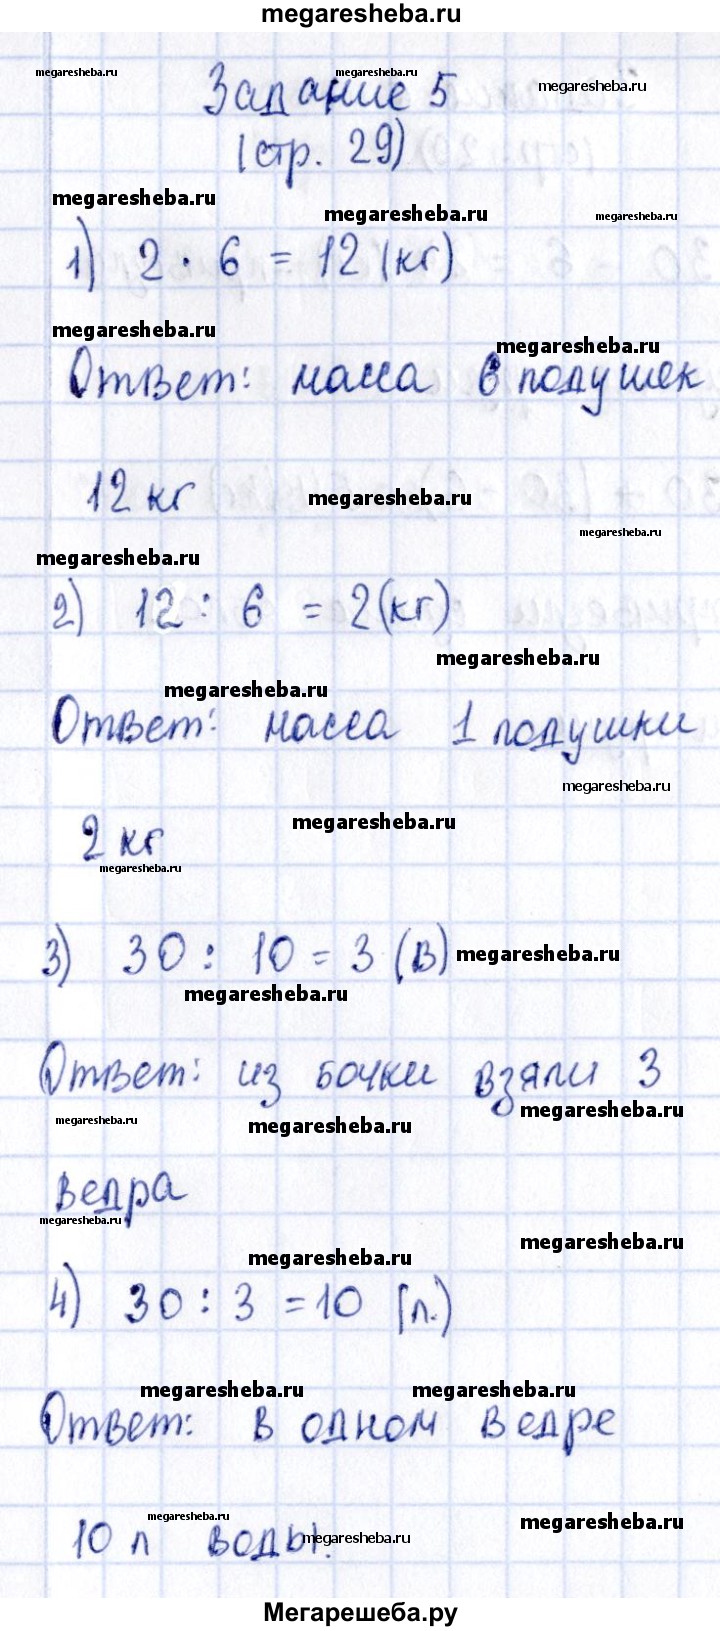 megaresheba.ru
megaresheba.ru megaresheba.ru megaresheba.ru
Задание 5
(стр. 29)
megaresheba.ru megaresheba.ru megaresheba.ru
1) 2 · 6 = 12 (кг)
megaresheba.ru megaresheba.ru
Ответ: масса 6 подушек
12 кг megaresheba.ru
megaresheba.ru
megaresheba.ru
2) 12 : 6 = 2 (кг)
megaresheba.ru
megaresheba.ru
Ответ: масса 1 подушки
megaresheba.ru
2 кг megaresheba.ru
megaresheba.ru
3) 30 : 10 = 3 (в) megaresheba.ru
megaresheba.ru
Ответ: из бочки взяли 3
megaresheba.ru megaresheba.ru megaresheba.ru
ведра
megaresheba.ru megaresheba.ru
megaresheba.ru
4) 30 : 3 = 10 (л.)
megaresheba.ru megaresheba.ru
Ответ: в одном ведре
megaresheba.ru megaresheba.ru
10 л воды. megaresheba.ru
Мегарешеба.ру